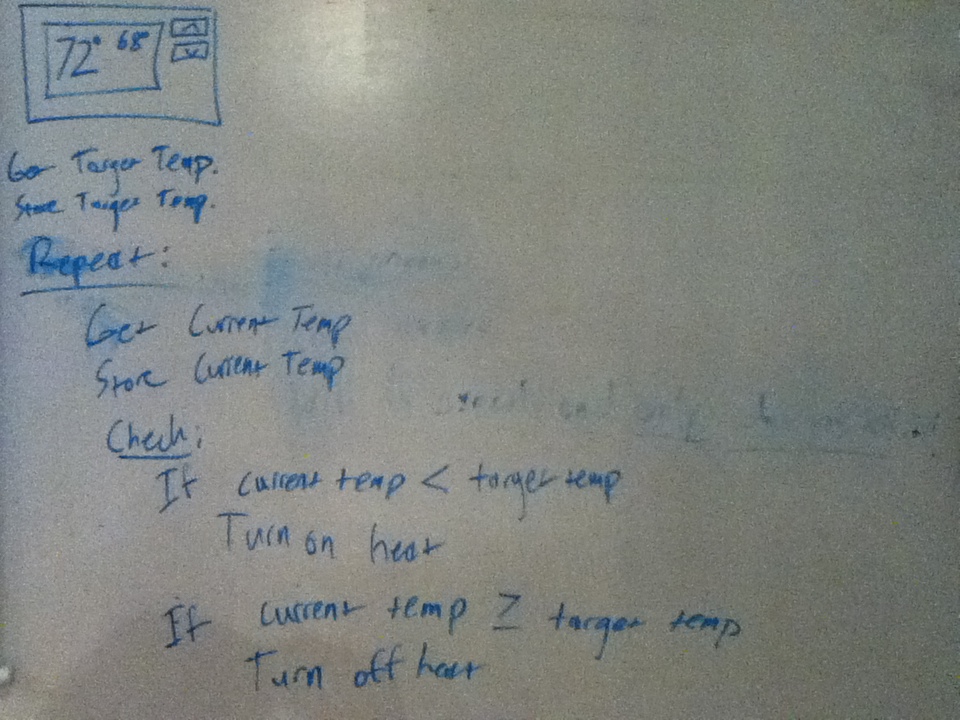 72° 68°
Get Target Temp.
Store Target Temp.
Repeat:
Get Current Temp
Store Current Temp
Check:
If current temp < target temp
Turn on heat
If current temp ≥ target temp
Turn off heat